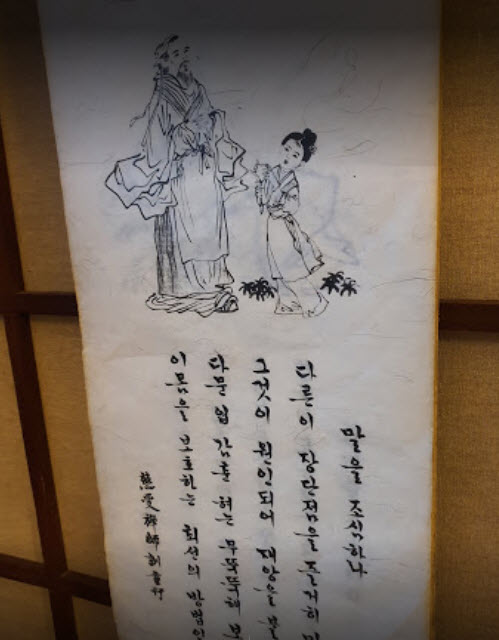 말을 조심하나
다른이 장단점을 즐거히
그것이 원인되어 재앙을
다문 입 감춘 혀는 무뚝뚝해 보
이 몸을 보호하는 최선의 방법인
慈愛禪師訓